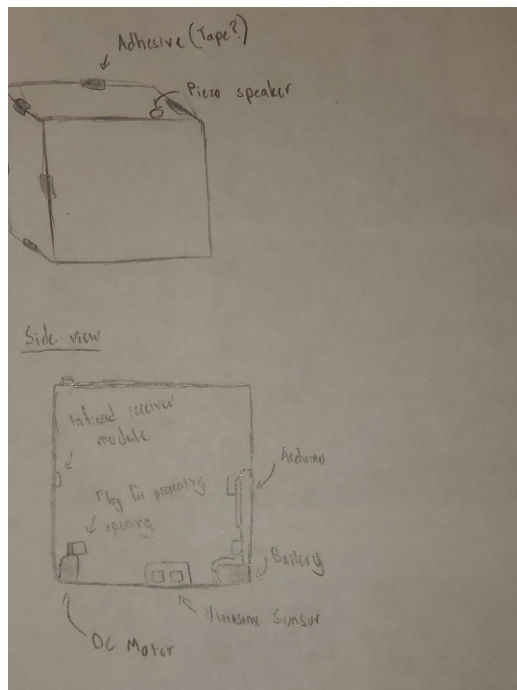 Adhesive (Tape?)
Piezo speaker
Side view
Infrared receiver
module
Arduino
Flag for preventing
opening
Battery
Ultrasonic Sensor
DC Motor